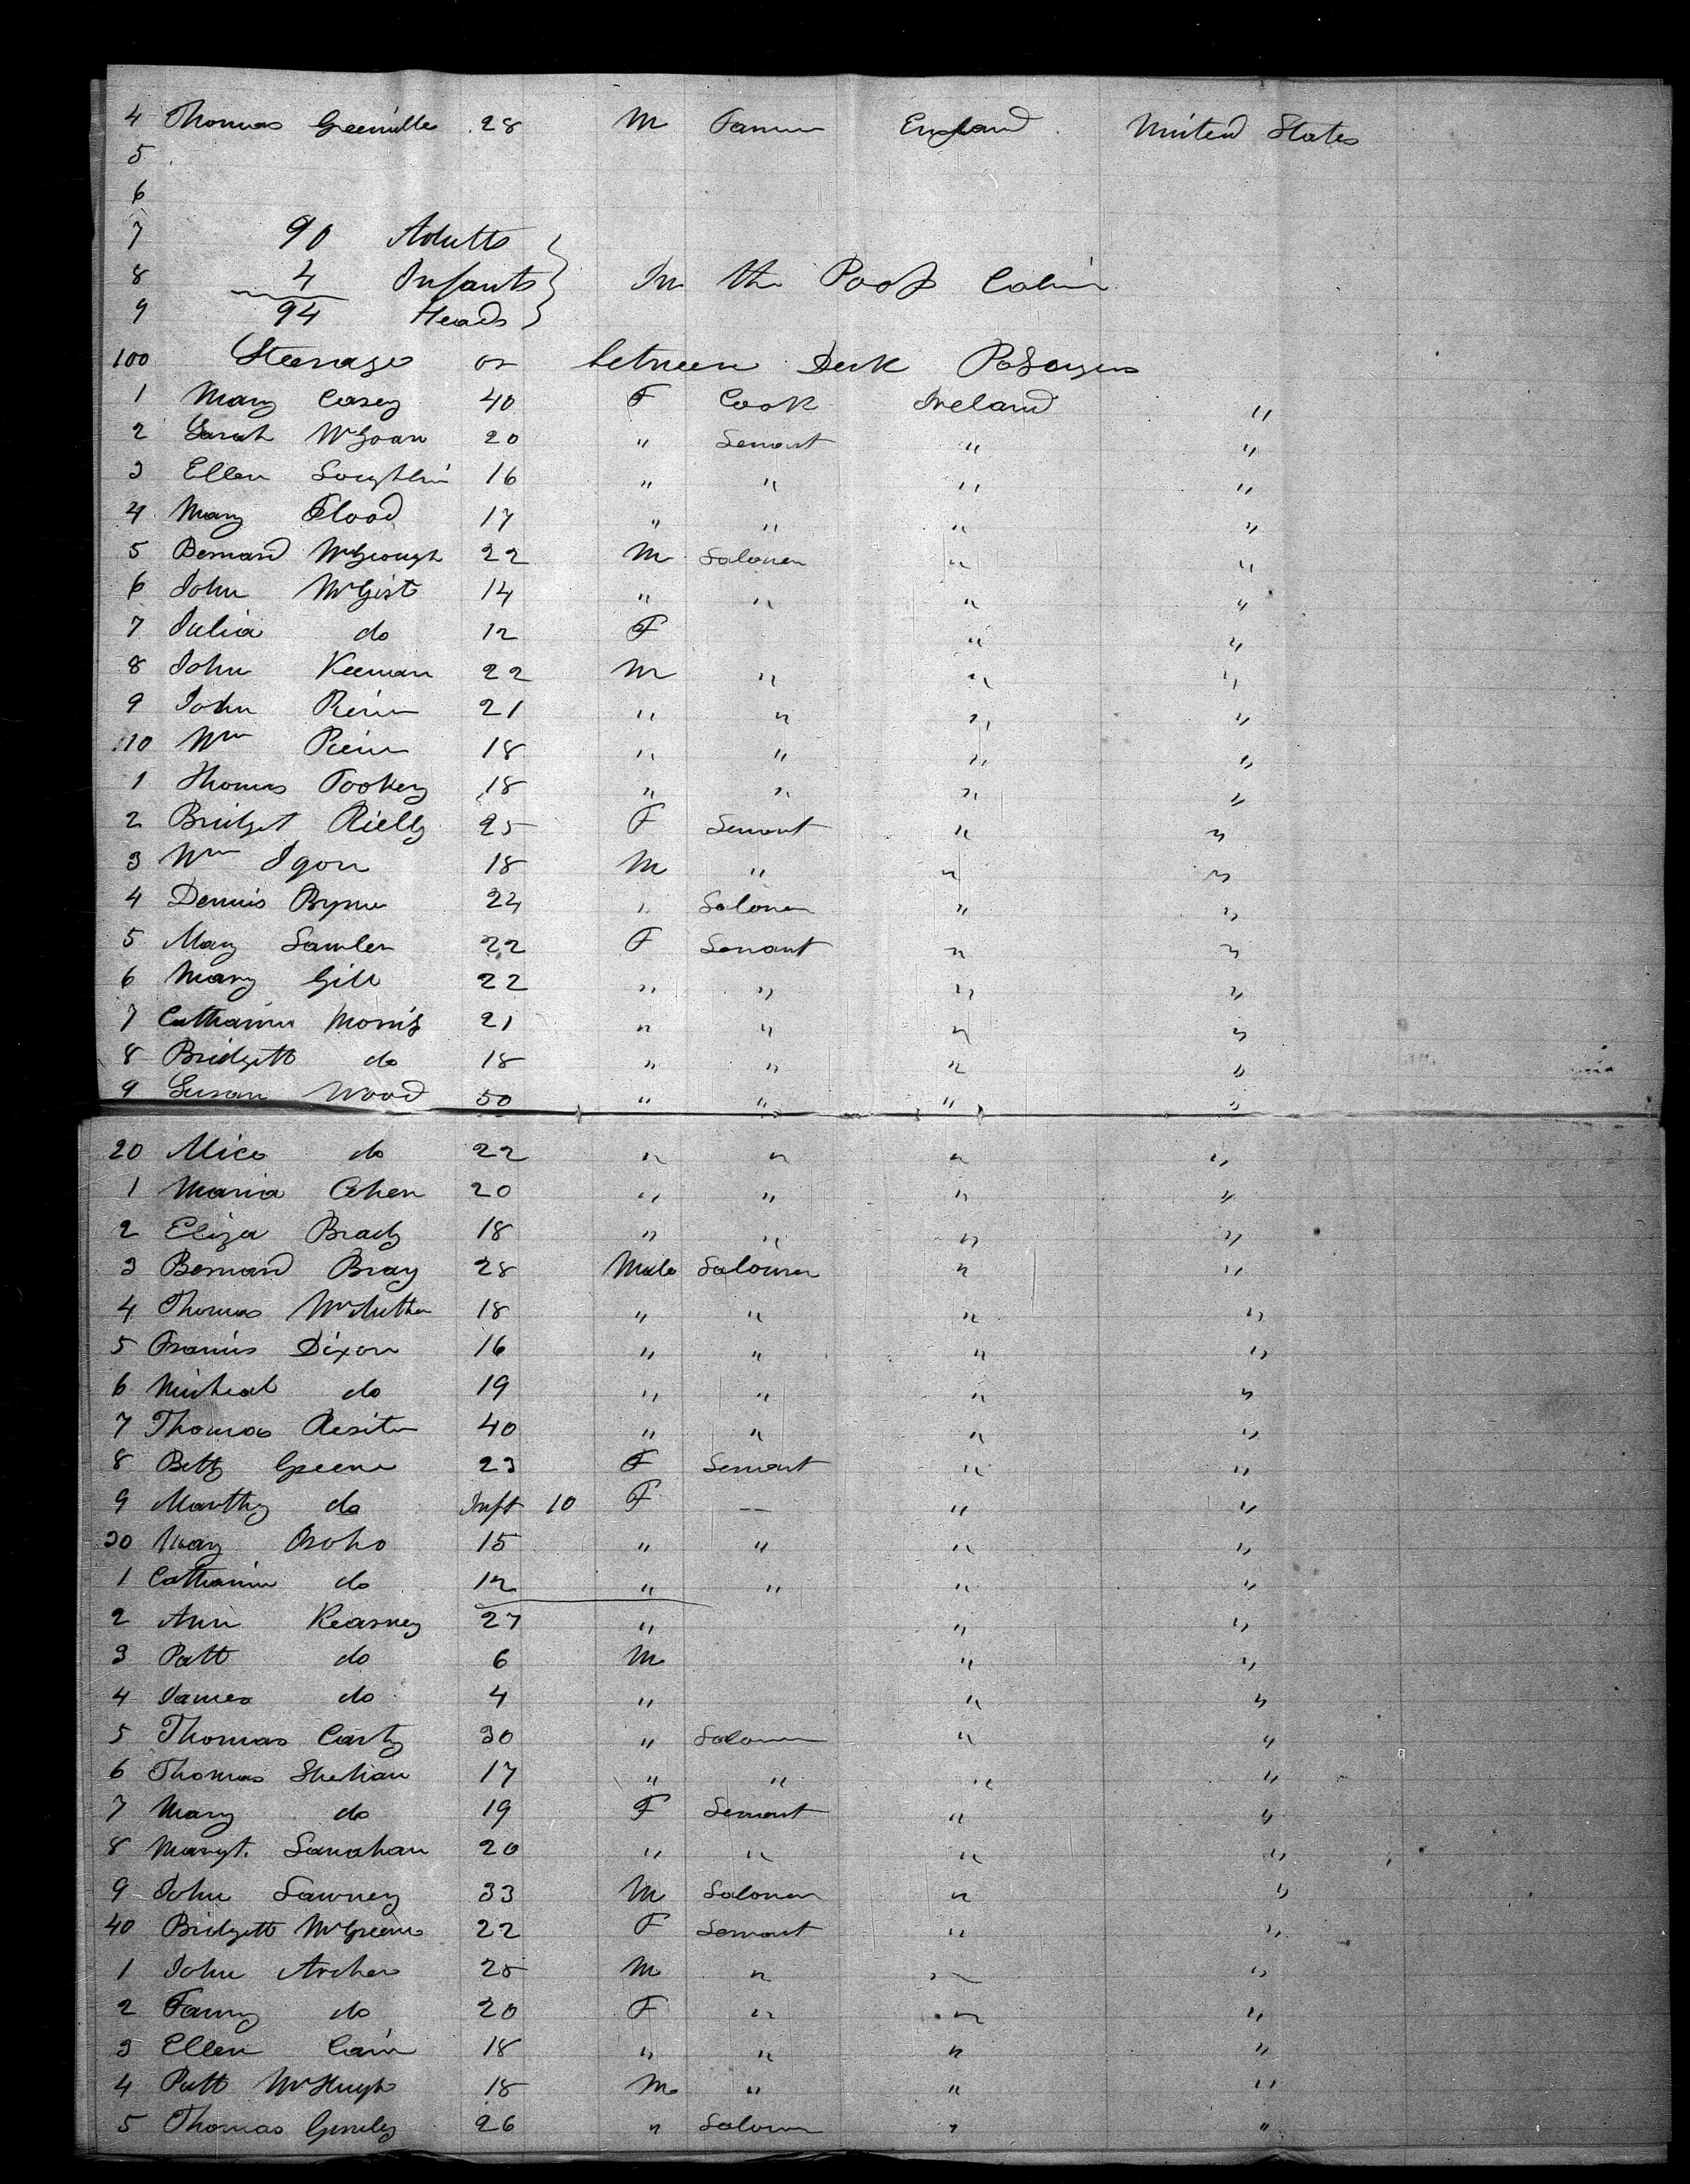 4 Thomas Greenville 28 M Farmer England United States
5
6
7 90 Adults
8 4 Infants In the Poop Cabin
9 94 Heads
100 Steerage or between Deck Passengers
1 Mary Casey 40 F Cook Ireland "
2 Sarah McGoan 20 " Servant " "
3 Ellen Loughlin 16 " " " "
4 Mary Flood 17 " " " "
5 Bernard McGeough 22 M Labourer " "
6 John McGist 14 " " " "
7 Julia do 12 F " "
8 John Keenan 22 M " " "
9 John 21 " " " "
110 Wm 18 " " " "
1 Thomas Tookey 18 " " " "
2 Bridget Rielly 25 F Servant " "
3 Wm Igon 18 M " " "
4 Dennis Byrne 24 " Labourer " "
5 Mary Lawler 22 F Servant " "
6 Mary Gill 22 " " " "
7 Catharine Morris 21 " " " "
8 Bridgett do 18 " " " "
9 Susan Wood 50 " " " "
20 Alice do 22 " " " "
1 Maria 20 " " " "
2 Eliza Brady 18 " " " "
3 Bernard Bray 28 Male Labourer " "
4 Thomas 18 " " " "
5 Francis Dixon 16 " " " "
6 Micheal do 19 " " " "
7 Thomas 40 " " " "
8 Betty Greene 23 F Servant " "
9 Marthy do Inft 10 F — " "
30 Mary 15 " " " "
1 Catharine do 12 " " " "
2 Ann Kearney 27 " " "
3 Patt do 6 M " "
4 James do 4 " " "
5 Thomas Carty 30 " Labourer " "
6 Thomas Shehan 17 " " " "
7 Mary do 19 F Servant " "
8 Margt. Lanahan 20 " " " "
9 John Lawney 33 M Labourer " "
40 Bridgett McGreene 22 F Servant " "
1 John Archer 25 M " " "
2 Fanny do 20 F " " "
3 Ellen Cain 18 " " " "
4 Patt McHugh 18 M " " "
5 Thomas 26 " Labourer " "